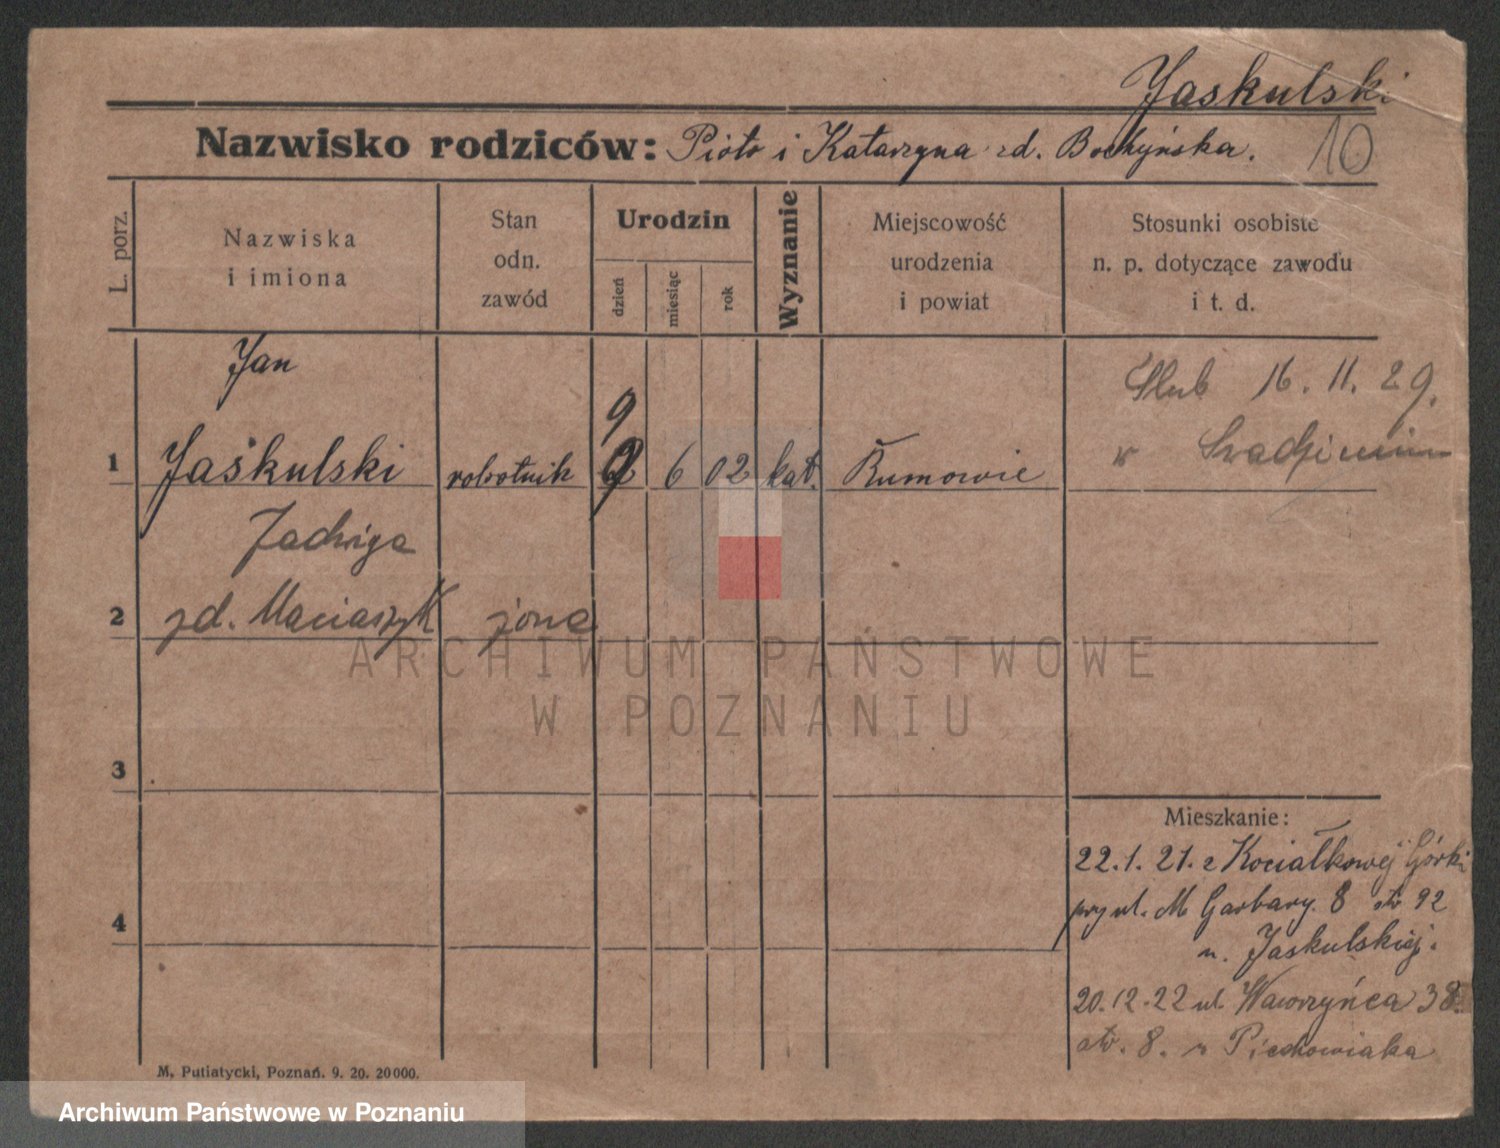 Jaskulski
Nazwisko rodziców: Piotr i Katarzyna zd. Bochyńska.
10
L. porz.
Nazwiska
i imiona
Stan
odn.
zawód
Urodzin
dzień
miesiąc
rok
Wyznanie
Miejscowość
urodzenia
i powiat
Stosunki osobiste
n. p. dotyczące zawodu
i t. d.
Jan
1 Jaskulski robotnik 9 6 02 kat.
Ślub 16. 11. 29.
w
Jadwiga
2 zd. Maciaszyk żona
3
4
Mieszkanie:
22.1.21. z Kociałkowej Górki
przy ul. M Garbary 8 otw 92
u. Jaskulskiej.
20.12.22 ul. Wawrzyńca 38.
otw. 8. u Piechowiaka
M. Putiatycki, Poznań. 9. 20. 20000.
ARCHIWUM PAŃSTWOWE
W POZNANIU
Archiwum Państwowe w Poznaniu